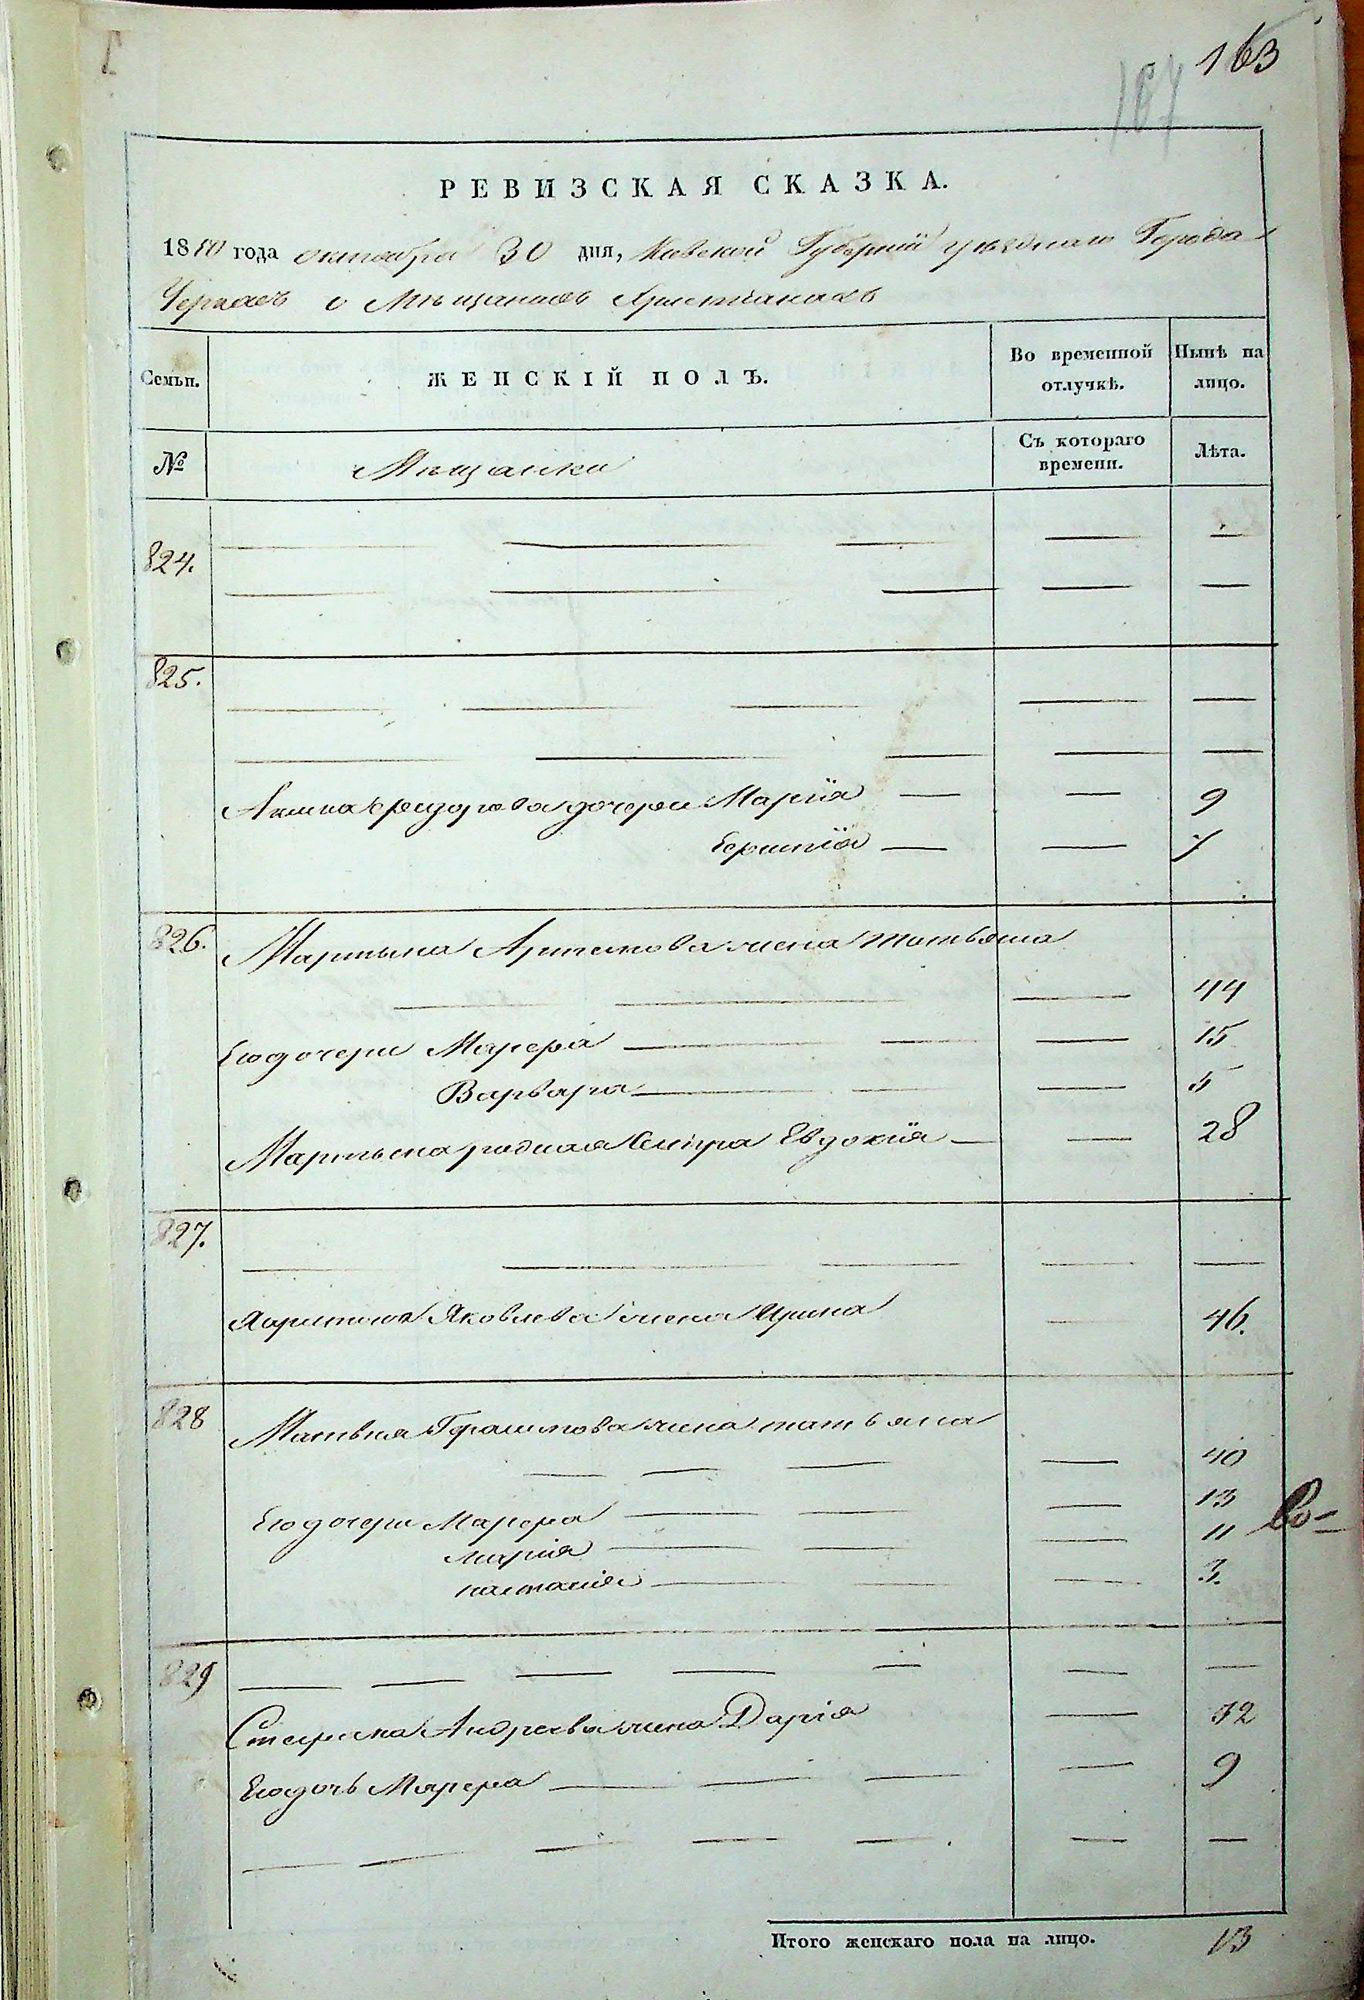 163
187
РЕВИЗСКАЯ СКАЗКА.
1850 года октября 30 дня, Киевской Губернии уезднаго Города
Черкас о Мещанах Христианах
Семьи. ЖЕНСКІЙ ПОЛЪ. Во временной отлучкѣ. Нынѣ на лицо.
№ Мещанки Съ котораго времени. Лѣта.
824. — — — — —
— — — — —
825. — — — — —
— — — — —
дочери Марія — — 9
— — 7
826. Мартына жена татьяна
— — — 44
Его дочери Марфа — — — 15
Варвара — — — 5
Мартына родная Сестра Евдокія — — 28
827. — — — — —
Харитона Яковлева жена Ирина — 46.
828 Матвея Герасимова жена татьяна
— — — — 40
Его дочери Марфа — — — 13
марія — — — 11
настасія — — — 3.
Во-
829 — — — — — —
Стефана Андреева жена Дарія — 32
Его дочь Марфа — — — — 9
— — — — — — —
Итого женскаго пола на лицо. 13